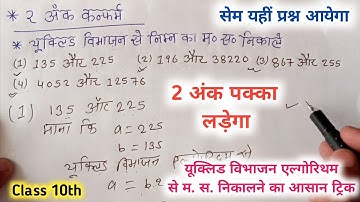 * २ अंक कन्फर्म
सेम यहीं प्रश्न आयेगा
* यूक्लिड विभाजन से निम्न का म० स० निकालें
(1) 135 और 225 (2) 196 और 38220 (3) 867 और 255
(4) 4052 और 12576
(1) 135 और 225
माना कि a = 225
b = 135
2 अंक पक्का
लड़ेगा
यूक्लिड विभाजन
a = b.q
यूक्लिड विभाजन एल्गोरिथम
से म. स. निकालने का आसान ट्रिक
Class 10th